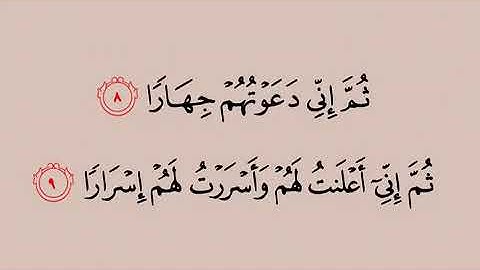 ثُمَّ إِنِّي دَعَوۡتُهُمۡ جِهَارٗا ٨
ثُمَّ إِنِّيٓ أَعۡلَنتُ لَهُمۡ وَأَسۡرَرۡتُ لَهُمۡ إِسۡرَارٗا ٩